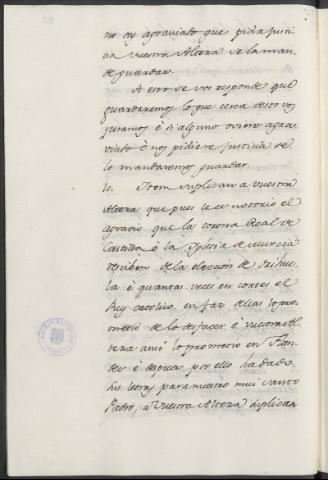 no ay agraviado que pida justi
cia vuestra Alteza se la man
de guardar.
A esto se vos responde que
guardaremos lo que cerca desto vos
juramos é si alguno oviere agra
viado é nos pidiere justicia se
lo mandaremos guardar.
Item suplican a Vuestra
Alteza que pues le es notorio el
agravio que la corona Real de
Castilla é la Iglesia de Murcia
resciben de la eleccion de Orihue
la é quantas veces en cortes el
Rey catolico en faz dellas lo pro
metió de lo desfacer, é vuestra Al
teza ansi lo prometio en Flan
des é despues por ello ha dado
sus letras para nuestro mui santo
Padre, a Vuestra Alteza suplican